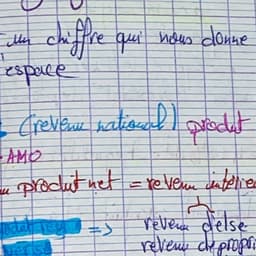 un chiffre qui nous donne
espace
(revenu national) produt
AMO
produt net = revenu intérie
=> revenu d'else
revenu de propri